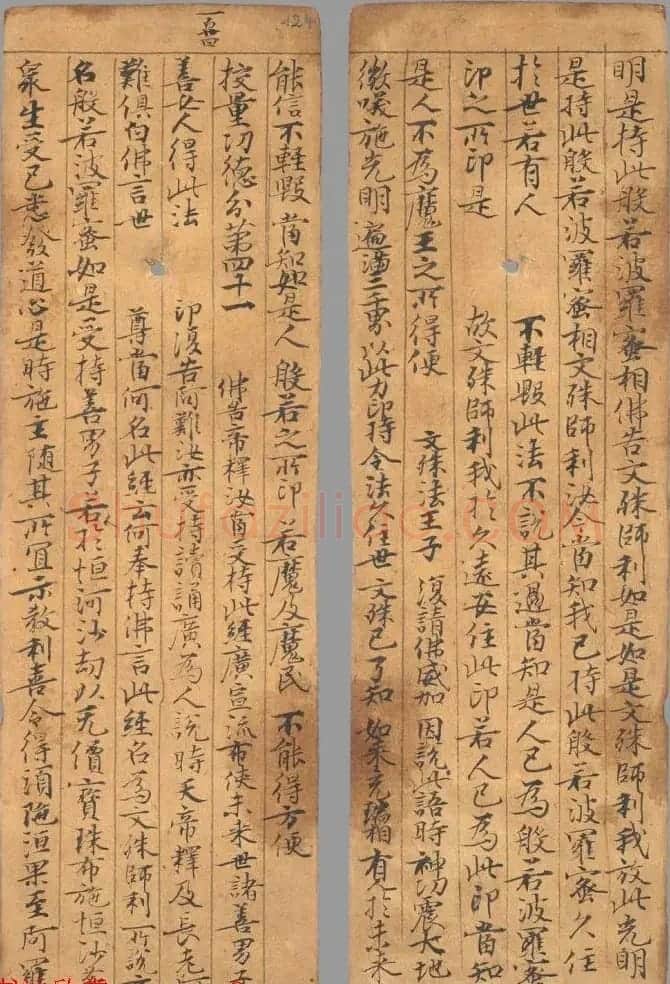 明是持此般若波羅蜜相佛告文殊師利如是如是文殊師利我放此光明
是持此般若波羅蜜相文殊師利汝今當知我已持此般若波羅蜜久住
於世若有人 不輕毀此法不說其過當知是人已為般若波羅蜜
印之所印是 故文殊師利我於久遠安住此印若人已為此印當知
是人不為魔王之所得便 文殊法王子 復請佛威加 因說此語時神功震大地
微咲施光明遍滿三千界以此力印持令法久住世文殊已了知如來 有見於未來
能信不輕毀當知如是人 般若之所印 若魔及魔民 不能得方便
挍量功德分第四十一 佛告帝釋汝當受持此經廣宣流布使未來世諸善男子
善女人得此法 印復告阿難汝亦受持讀誦廣為人說時天帝釋及長老阿
難俱白佛言世 尊當何名此經云何奉持佛言此經名為文殊師利所說
名般若波羅蜜如是受持善男子若於恒河沙劫以无價寶珠布施恒沙
衆生受已悉發道心是時施主隨其所宜示教利喜令得須陁洹果至阿羅